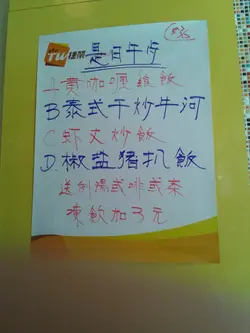 是日午市
A.黄咖喱雞飯
B泰式干炒牛河
C虾丸炒飯
D.椒盐猪扒飯
送例湯或啡或茶
凍飲加3元